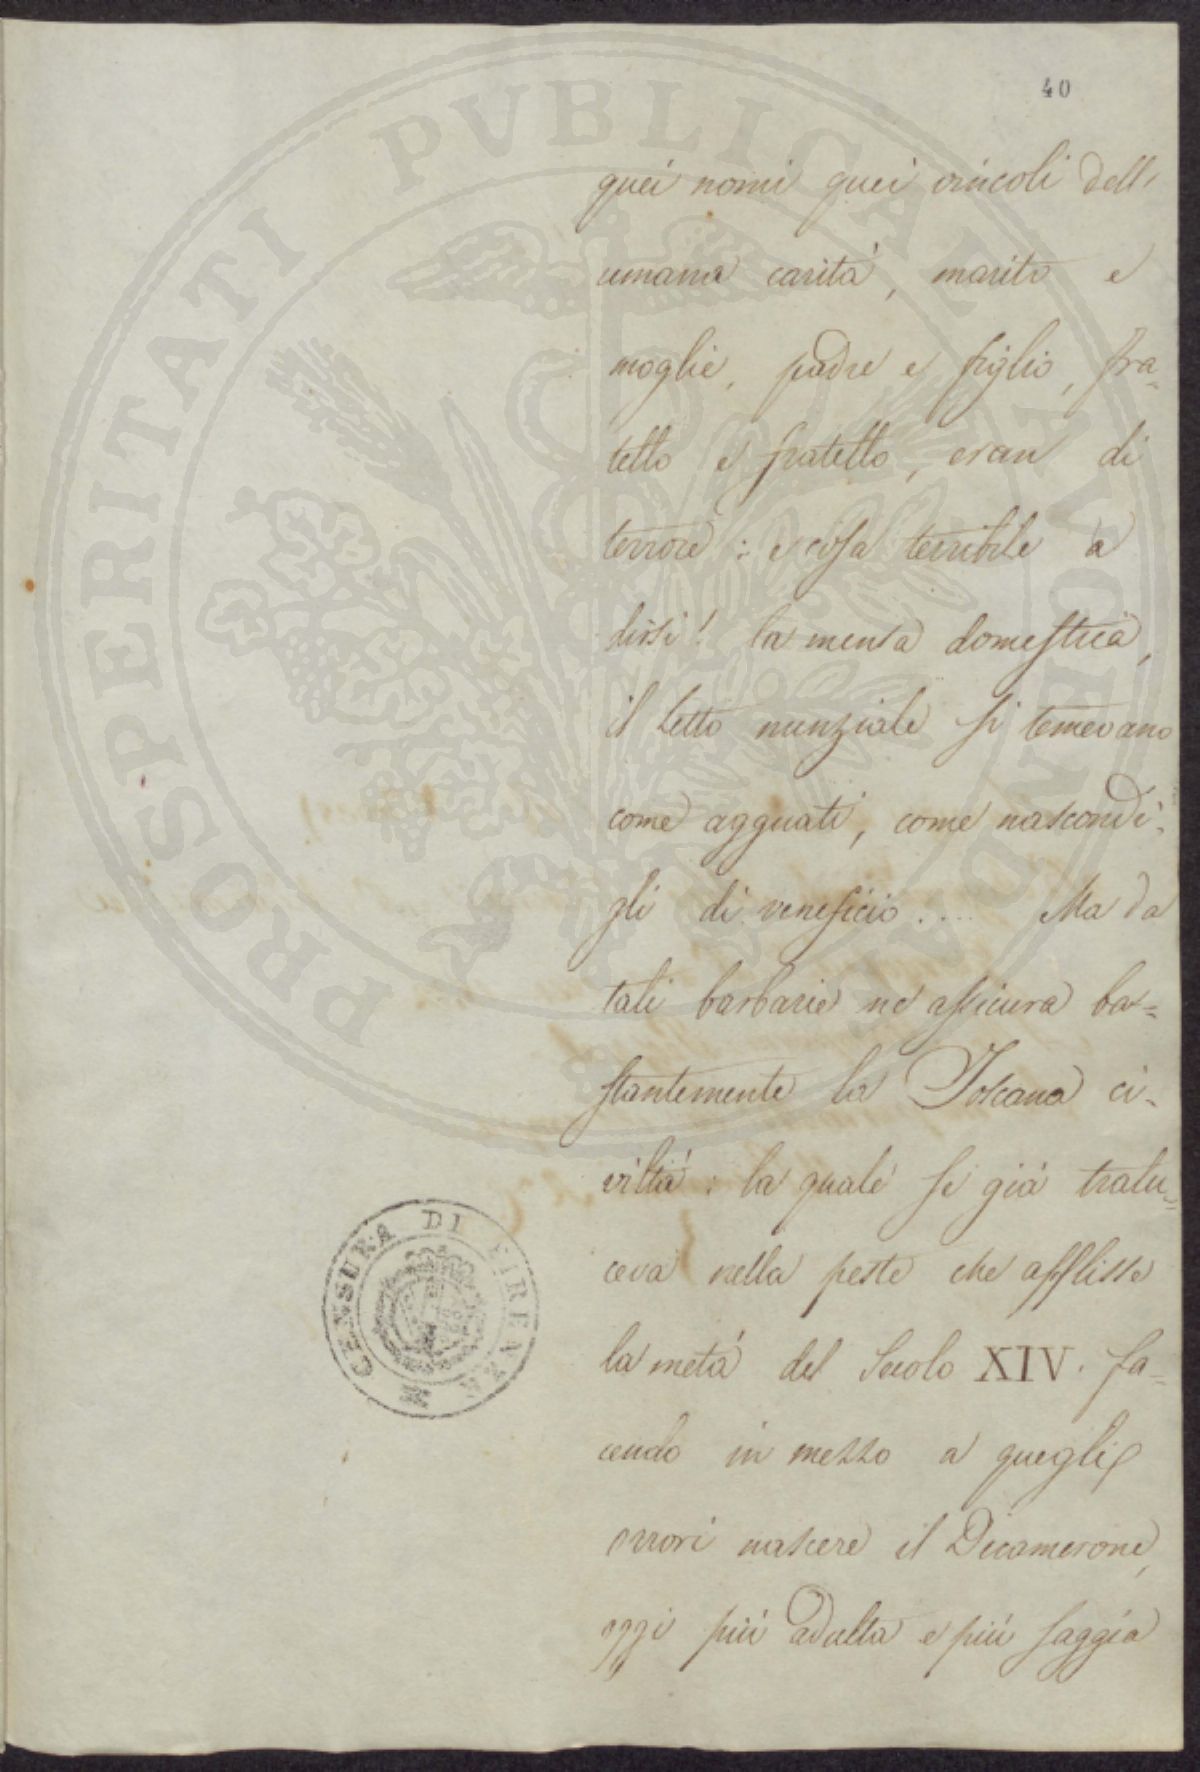 40
quei nomi quei vincoli dell'
umana carità, marito e
moglie, padre e figlio, fra=
tello e fratello, eran di
terrore: e cosa terribile a
dirsi! la mensa domestica,
il letto nunziale si temevano
come agguati, come nascondi-
gli di veneficio.... Ma da
tali barbarie ne assicura ba=
stantemente la Toscana ci-
viltà: la quale se già tralu=
ceva nella peste che afflisse
la metà del Secolo XIV. fa=
cendo in mezzo a quegli
orrori nascere il Dicamerone,
oggi più adulta e più saggia
CENSURA DI FIRENZE
PROSPERITATI PVBLICAE AVGENDAE